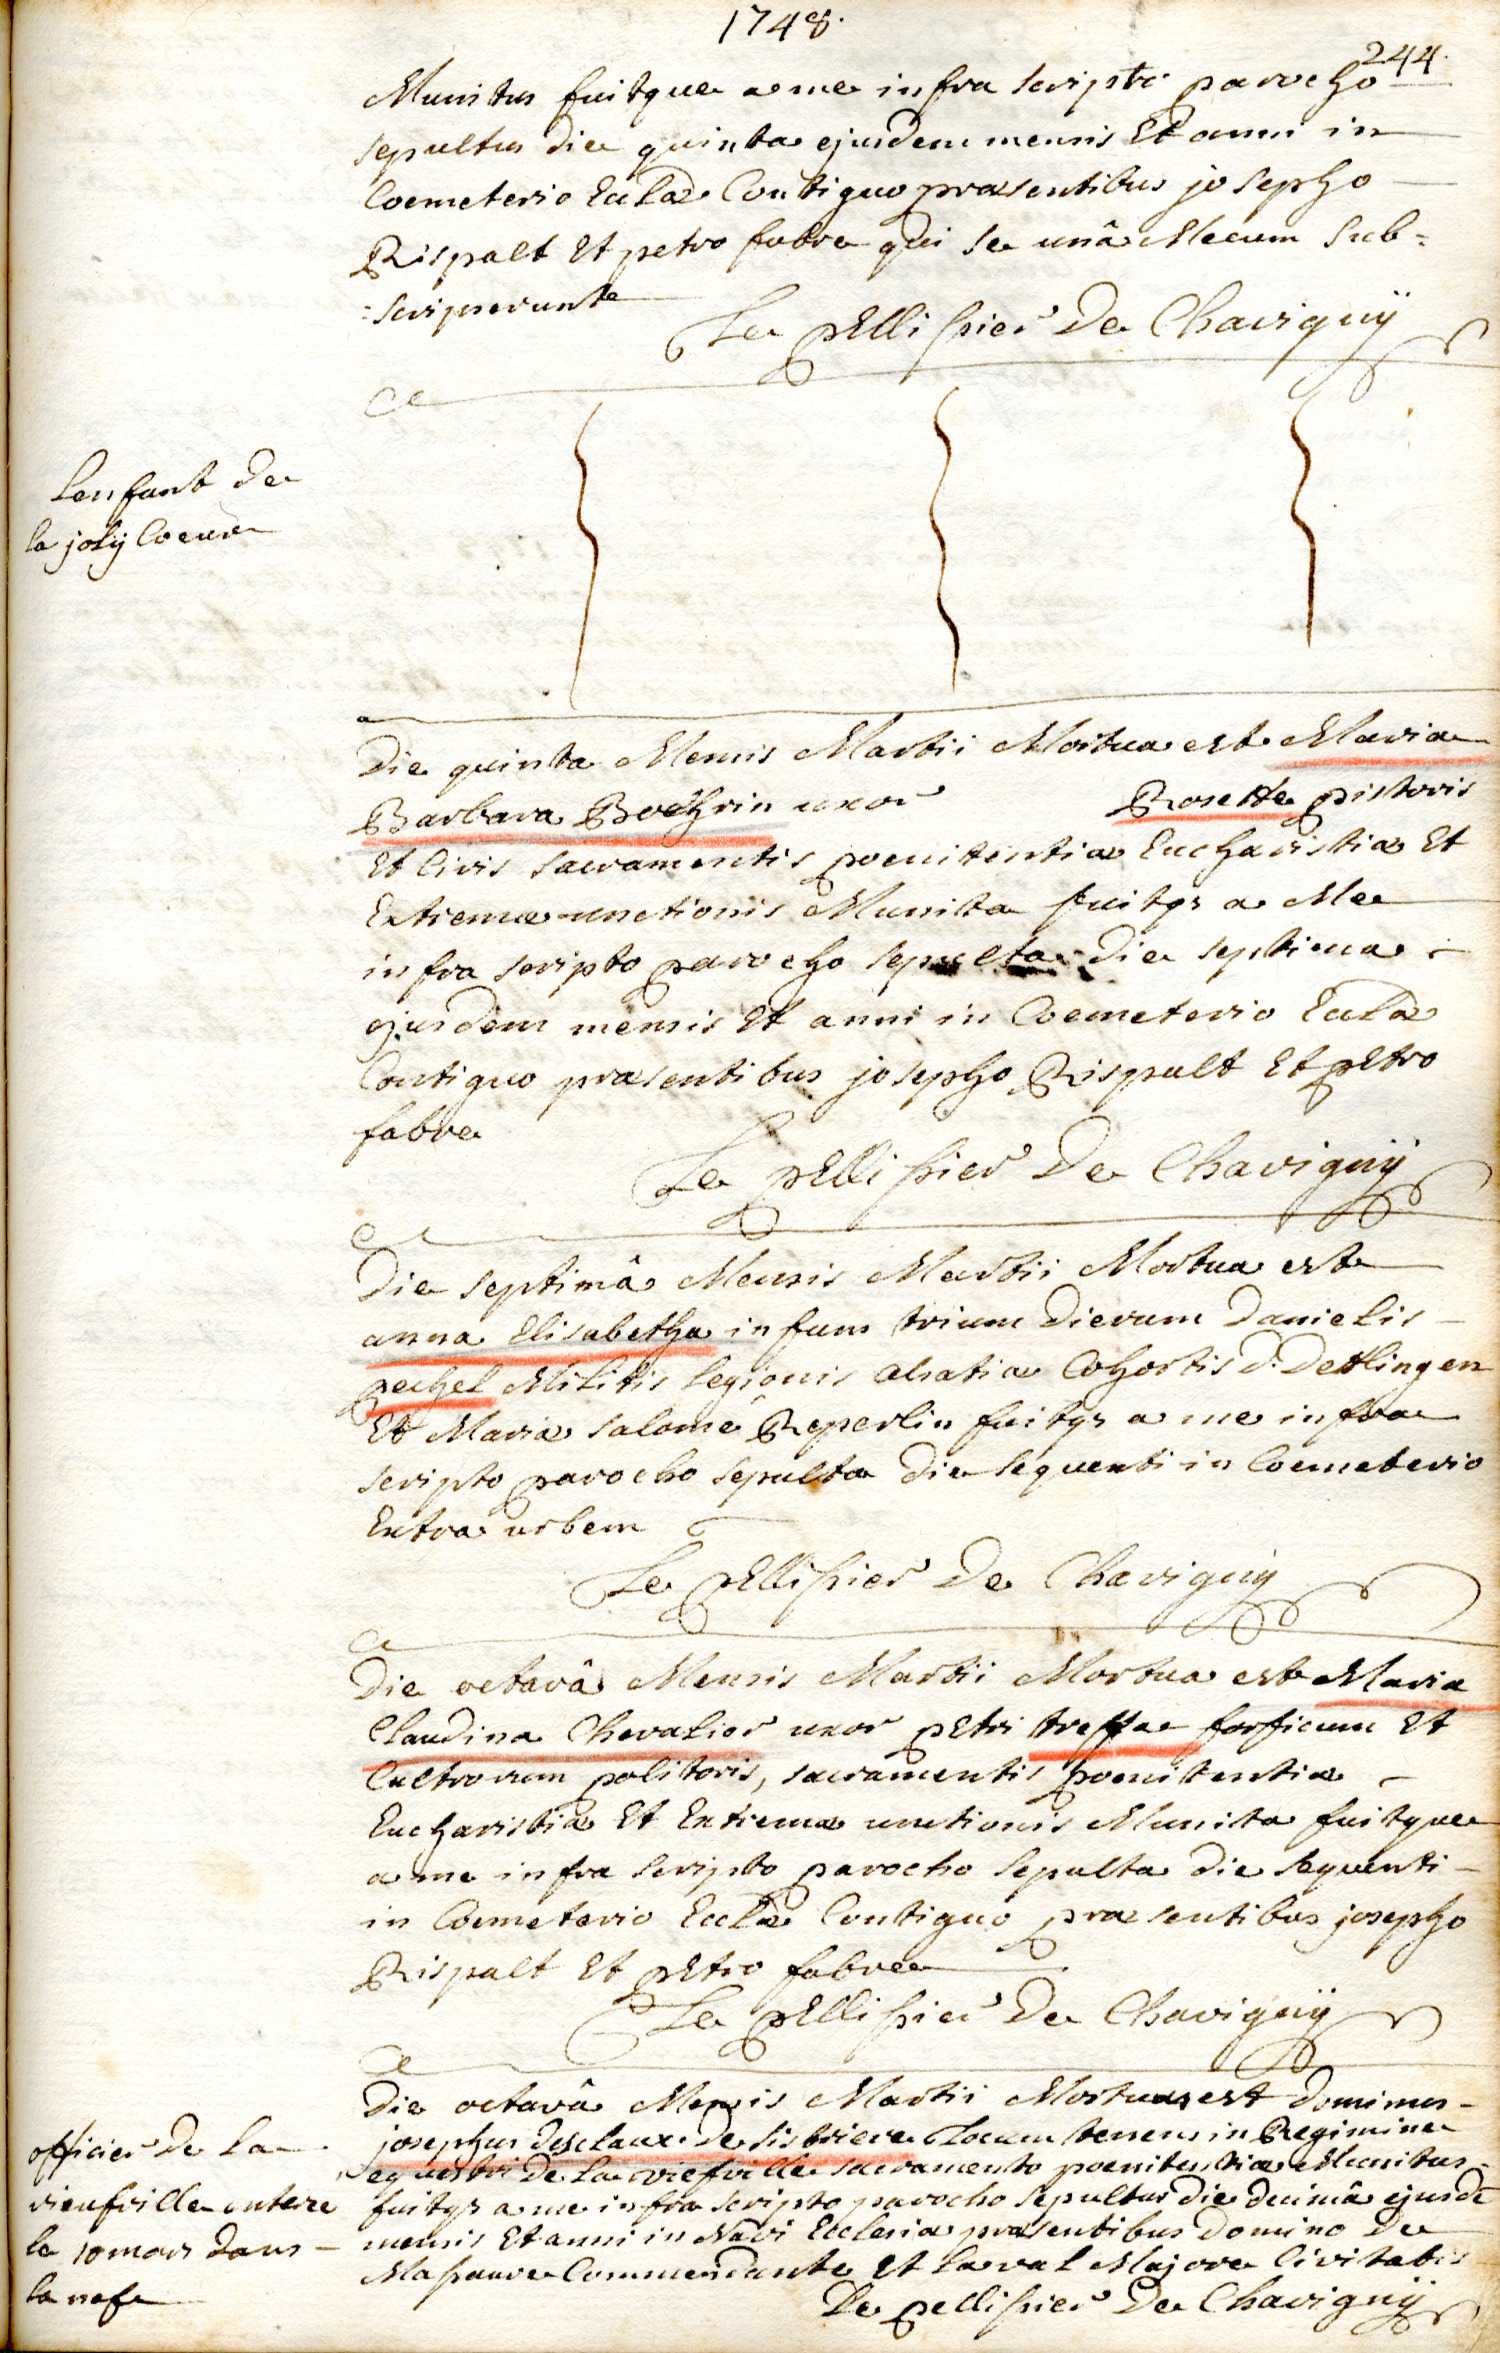 1748.
244.
Munitus fuitque a me infra scripto parocho
sepultus die quinta ejusdem mensis Et anni in
Coemeterio Eccla Contiguo præsentibus josepho
Rispalt Et petro fabre qui se unâ Mecum sub=
=scripserunt
Le pEllissier De Chavignÿ
Lenfant De
la jolÿ Coeur
Die quinta Mensis Martii Mortua est Maria
Barbara Boehrin uxor Rosette pistoris
Et Civis sacramentis poenitentiæ Eucharistiæ Et
Extremæ unctionis Munita fuitqz a Me
infra scripto parocho sepulta Die septima
ejusdem mensis Et anni in Coemeterio Eccla
Contiguo præsentibus josepho Rispalt Et pEtro
fabre
Le pElli ssier De Chavignÿ
Die septimâ Mensis Martii Mortua est
anna Elisabetha infans trium Dierum Danielis
pechel Militis legionis alsatiæ Cohortis D. Dettlingen
Et Mariæ salomé Reperlin fuitqz a me infra
scripto parocho sepulta Die sequenti in Coemeterio
Extra urbem
Le pEllissier De Chavignÿ
Die octavâ Mensis Martii Mortua est Maria
Claudina Chevalier uxor pEtri treffae forficum Et
Cultrorum politoris, sacramentis poenitentiæ
Eucharistiæ Et Extremæ unctionis Munita fuitque
a me infra scripto parocho sepulta die sequenti
in Coemeterio Eccla Contiguo præsentibus josepho
Rispalt Et pEtro fabre
Le pEllissier De Chavignÿ
Die octavâ Mensis Martii Mortuus est Dominus
josephus Desclaux De sisbriere Locum tenens in Regimine
equestri De La viefville sacramento poenitentiæ Munitus
fuitqz a me infra scripto parocho sepultus die decimâ ejusdē
mensis Et anni in Navi Ecclesiæ præsentibus Domino De
Massauve Commendante Et Laval Majore Civitatis
Le pellissier De Chavignÿ
officier De La
vieufville enterre
le 10 mars dans
la nefe